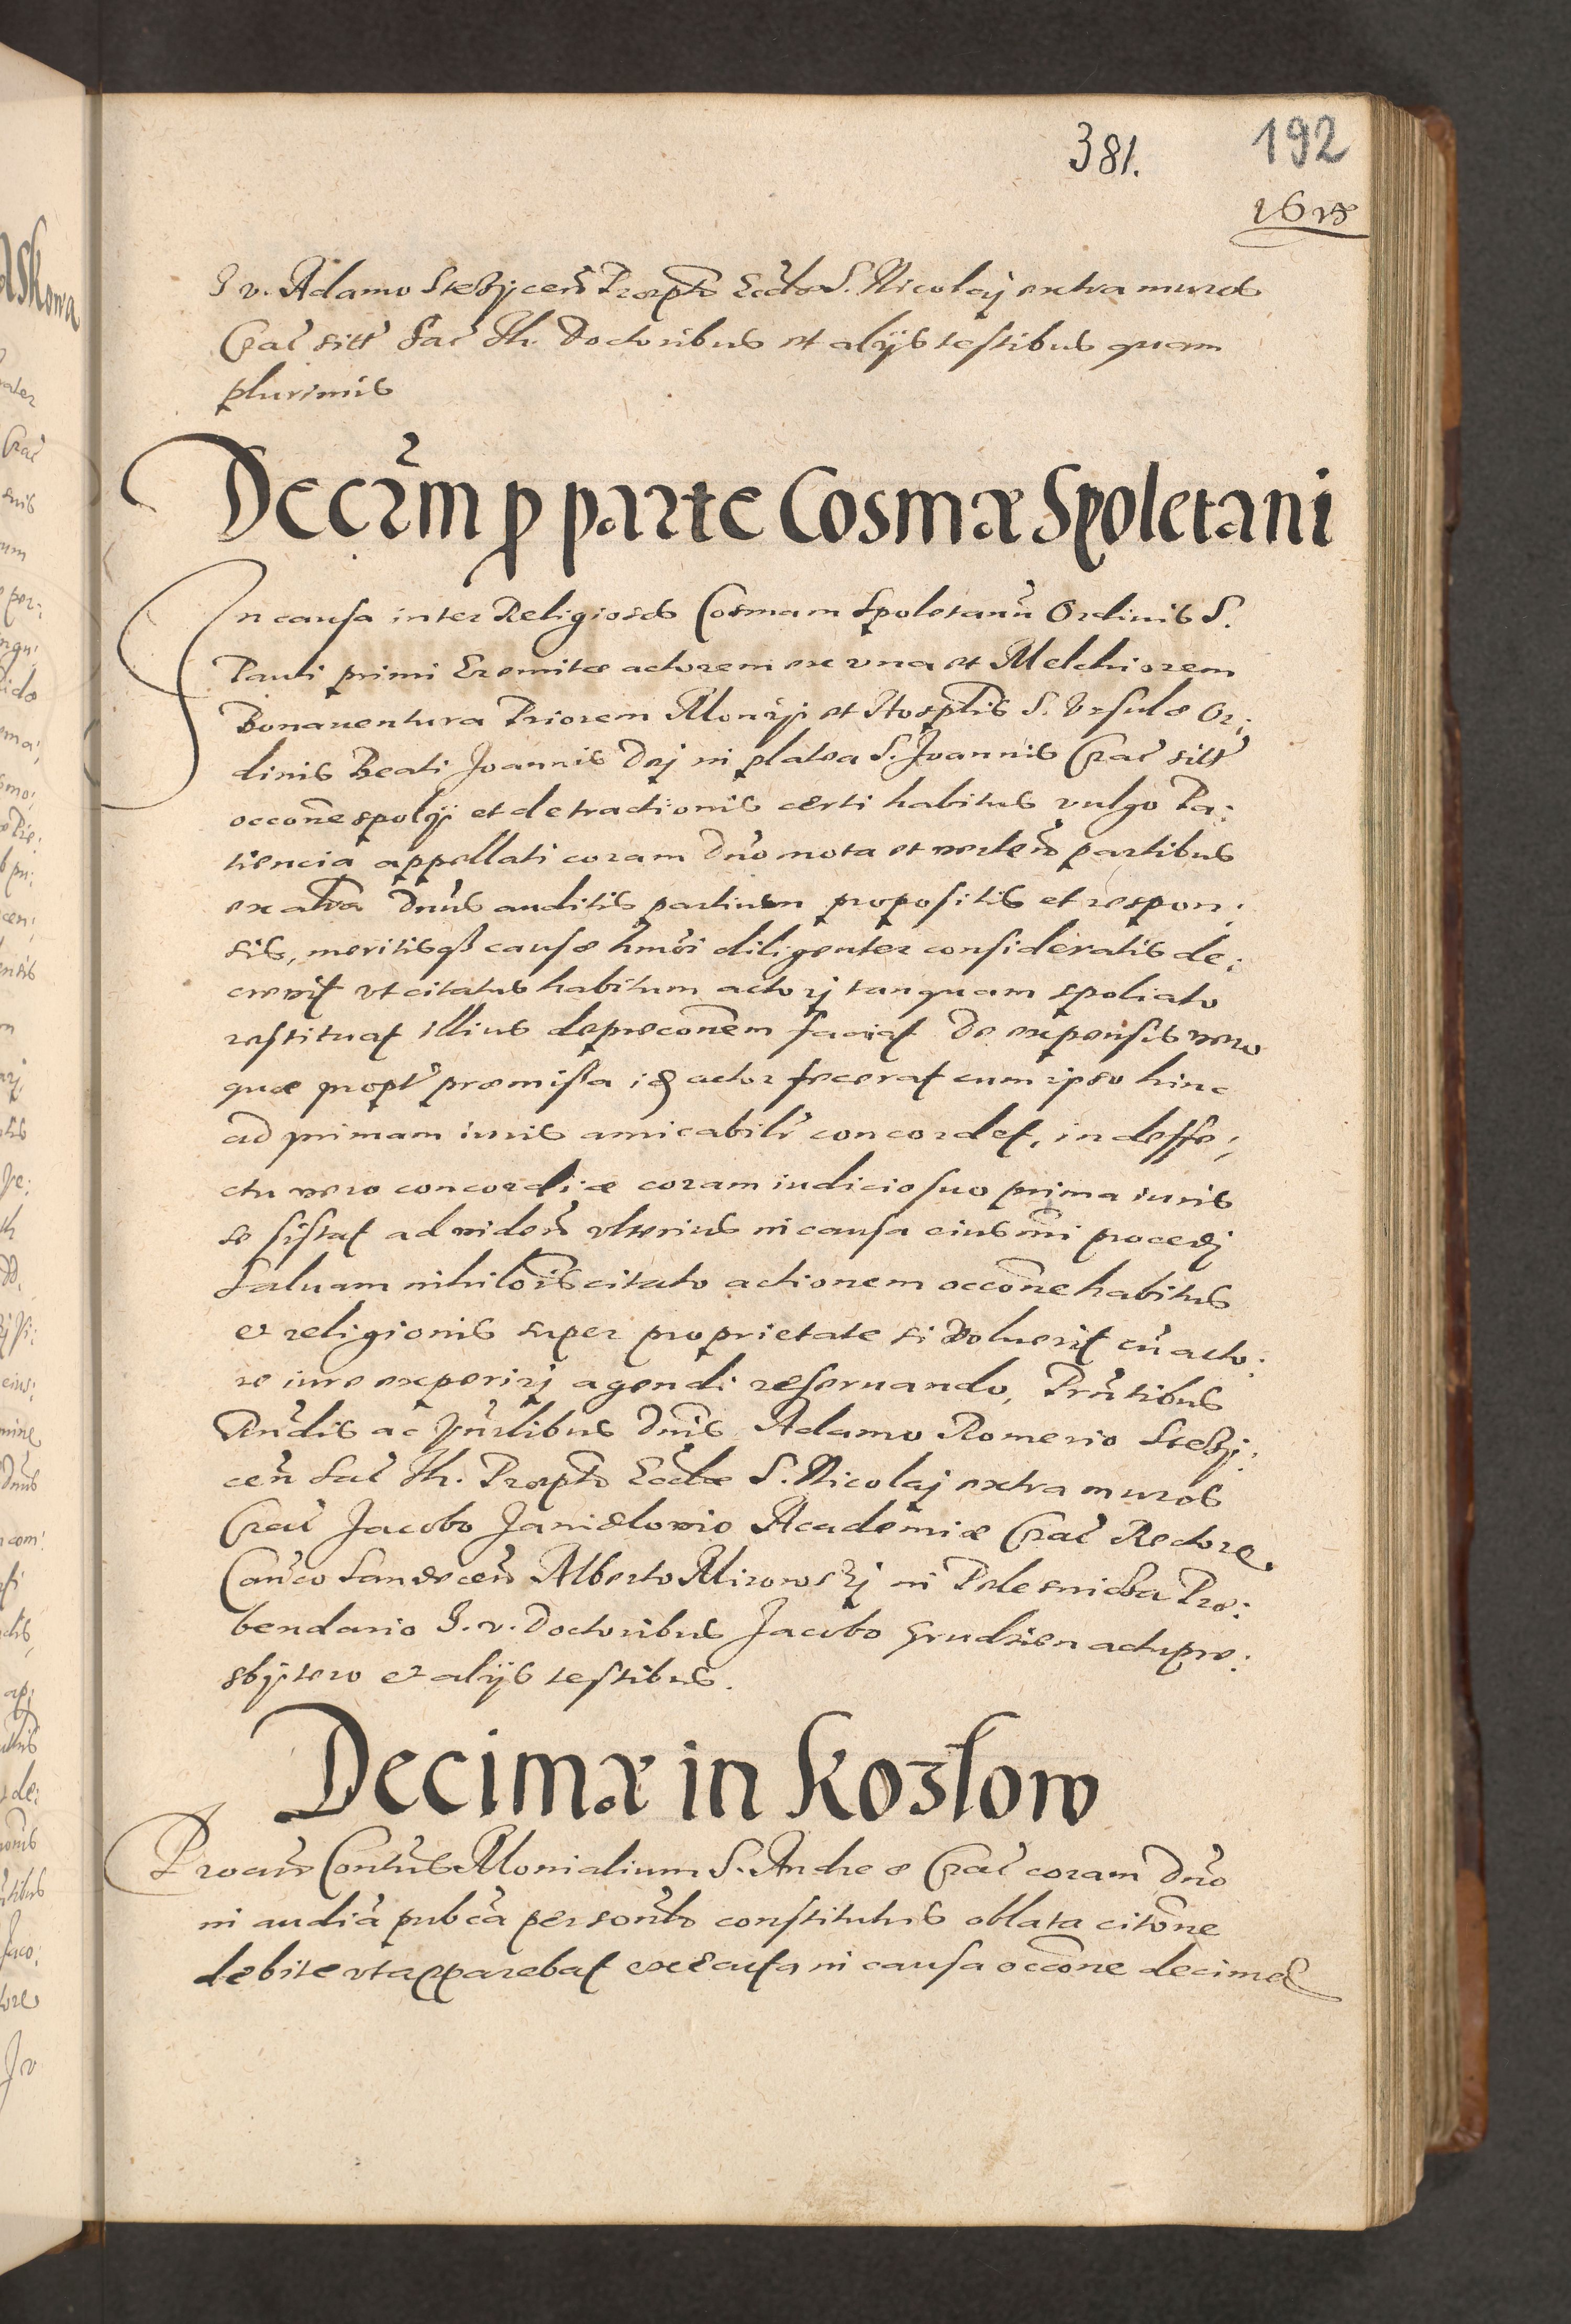 381. 192
1618
J v. Adamo Stezÿceñ Præpto Eccłæ S. Nicolaj extra muros
Crac sitt Sac Th. Doctoribus et alÿs testibus quam
plurimis
Decrm p parte Cosmæ Spoletani
In causa inter Religiosos Cosmam Spoletanũ Ordinis S.
Pauli primi Eremitæ actorem ex vna et Melchiorem
Bonauentura Priorem Monrÿ et Hosptlis S. Vrsulæ Or:
dinis Beati Joannis Dej in platea S. Joannis Crac sitt
occone spolÿ et detractionis certi habitus vulgo Pa:
tiencia appellati coram Dno mota et verteñ partibus
ex altra Dnus auditis partium propositis et respon:
sis, meritisq3 causæ hmoi diligenter consideratis de:
creuit vt citatus habitum actorj tanquam spoliato
restituat illius depreconem faciat De expensis vero
quæ propt præmissa idem actor fecerat cum ipso hinc
ad primam iuris amicabilr concordet, in deffe:
ctu vero concordiæ coram iudicio suo prima iuris
se sistat ad videñ vlterius in causa eiusmi procedj
Saluam nihilois citato actionem occone habitus
et religionis super proprietate si voluerit cũ acto:
re iure experirj agendi reseruando, Prntibus
Rndis ac Vnrlibus Dnis Adamo Romerio Stezÿ:
ceñ Sac Th. Præpto Eccłæ S. Nicolaj extra muros
Crac Jacobo Janidlovio Academiæ Crac Rectore,
Canco Sandeceñ Alberto Mirowskj in Pelesnicba Præ:
bendario J. v. Doctoribus Jacobo Grudzien actu pre:
sbÿtero et alÿs testibus.
Decimæ in Kozłow
Procur Contus Monialium S. Andreæ Crac coram Dno
in audia pubca personlr constitutus oblata citone
debite vt apparebat executa in causa occone decimæ